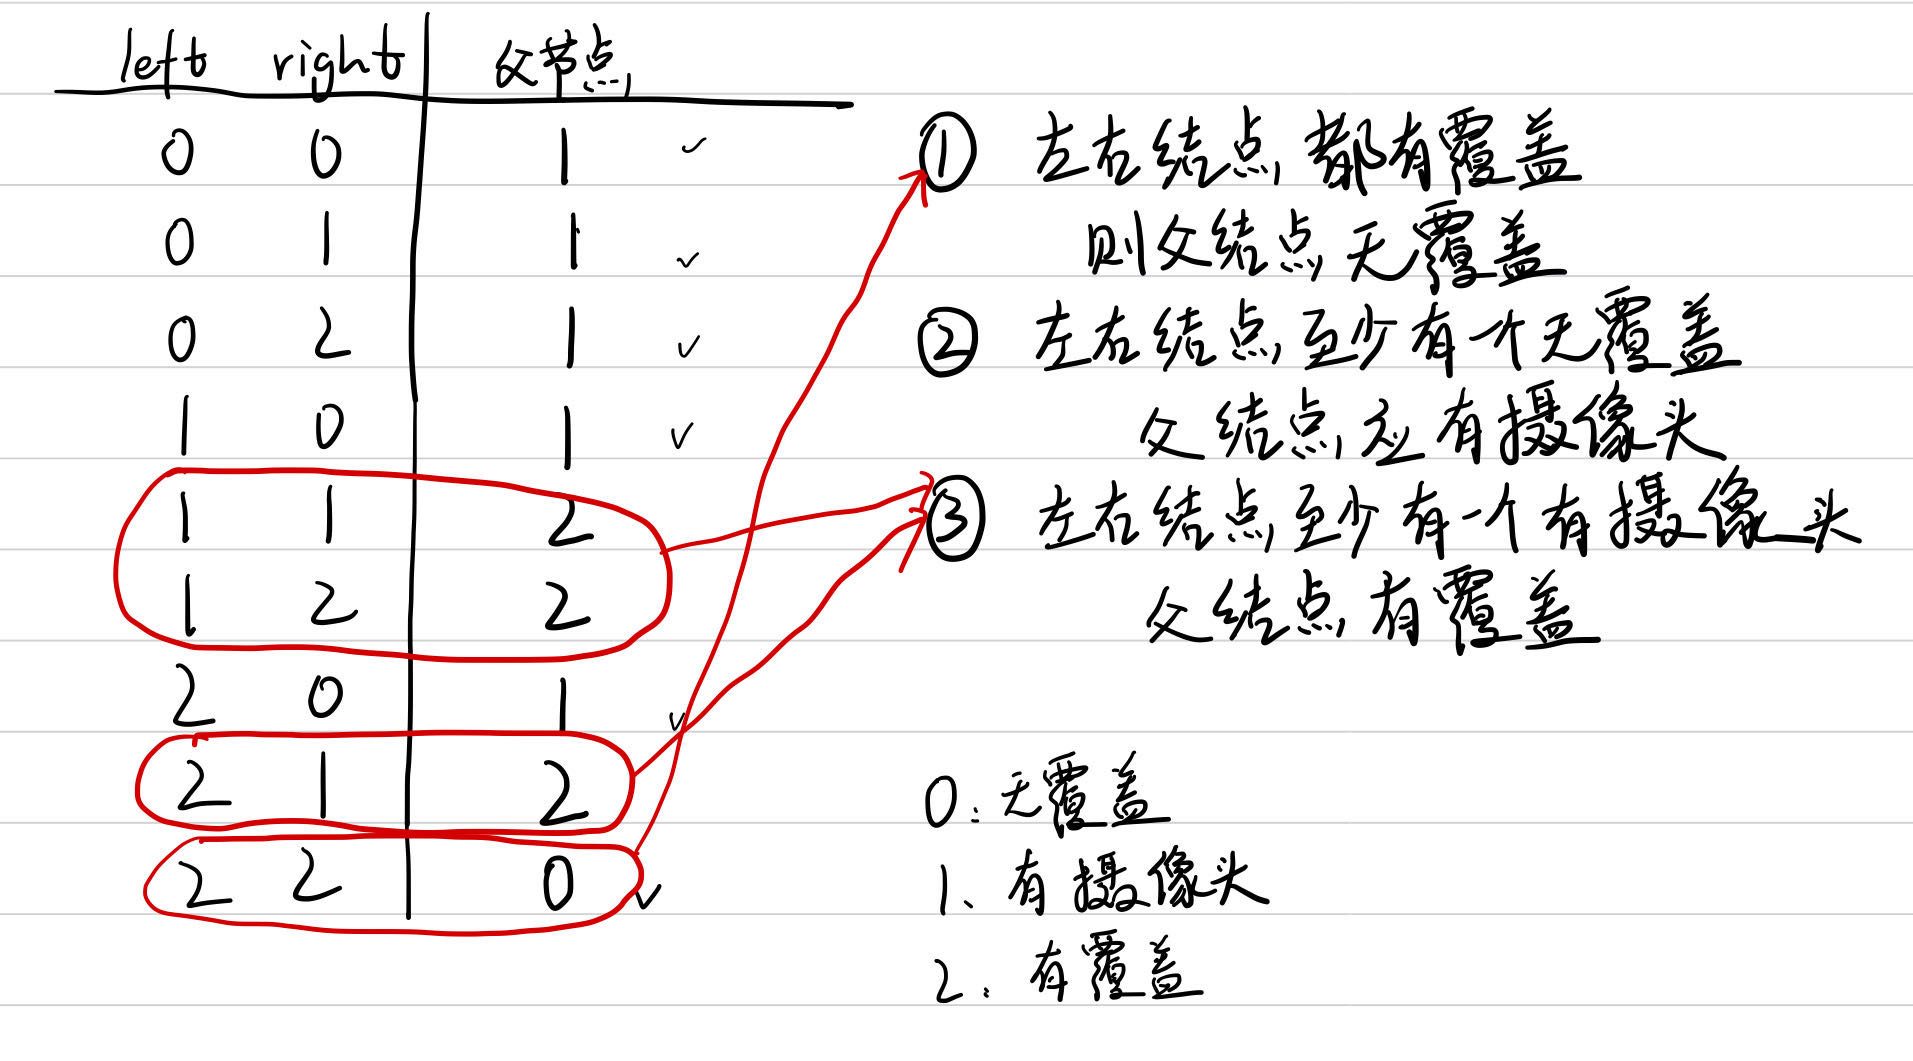 left right 父节点
0 0 1 ✓
0 1 1 ✓
0 2 1 ✓
1 0 1 ✓
1 1 2
1 2 2
2 0 1 ✓
2 1 2
2 2 0 ✓
① 左右结点都有覆盖
则父结点无覆盖
② 左右结点至少有一个无覆盖
父结点应有摄像头
③ 左右结点至少有一个有摄像头
父结点有覆盖
0: 无覆盖
1、有摄像头
2: 有覆盖